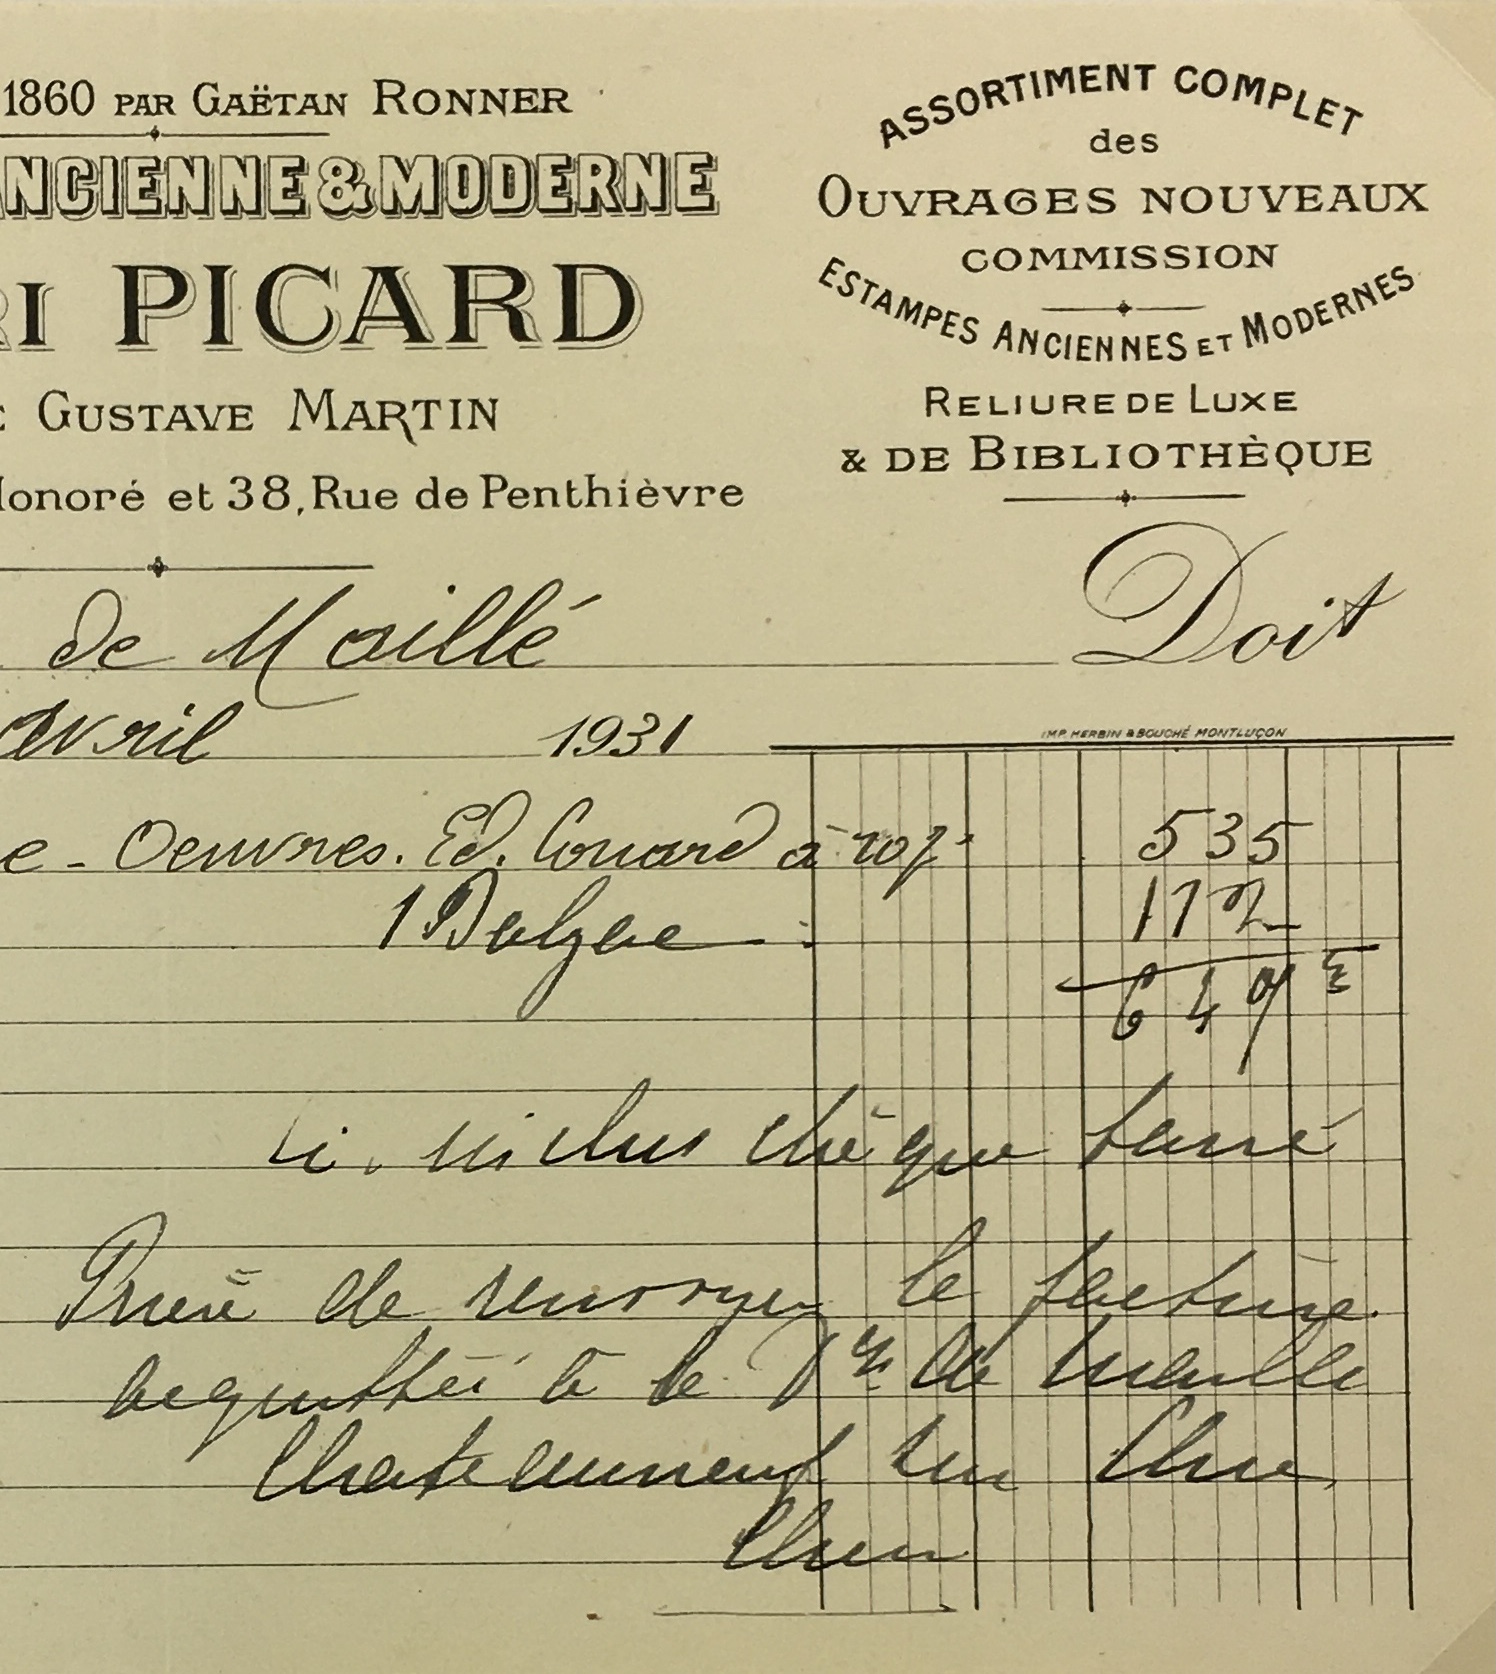 1860 PAR GAËTAN RONNER
ANCIENNE & MODERNE
RI PICARD
GUSTAVE MARTIN
Honoré et 38, Rue de Penthièvre
ASSORTIMENT COMPLET
des
OUVRAGES NOUVEAUX
COMMISSION
ESTAMPES ANCIENNES ET MODERNES
RELIURE DE LUXE
& DE BIBLIOTHÈQUE
de Maillé Doit
avril 1931
IMP. HERBIN & BOUCHÉ MONTLUÇON
e - Oeuvres. Ed. Conard à 535
1 Balzac :
ci. inclus chèque barré
Prière de renvoyer la facture
acquittée à la de Maillé
Chateauneuf sur Cher
Cher